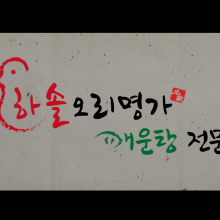 하솔오리명가
매운탕 전문